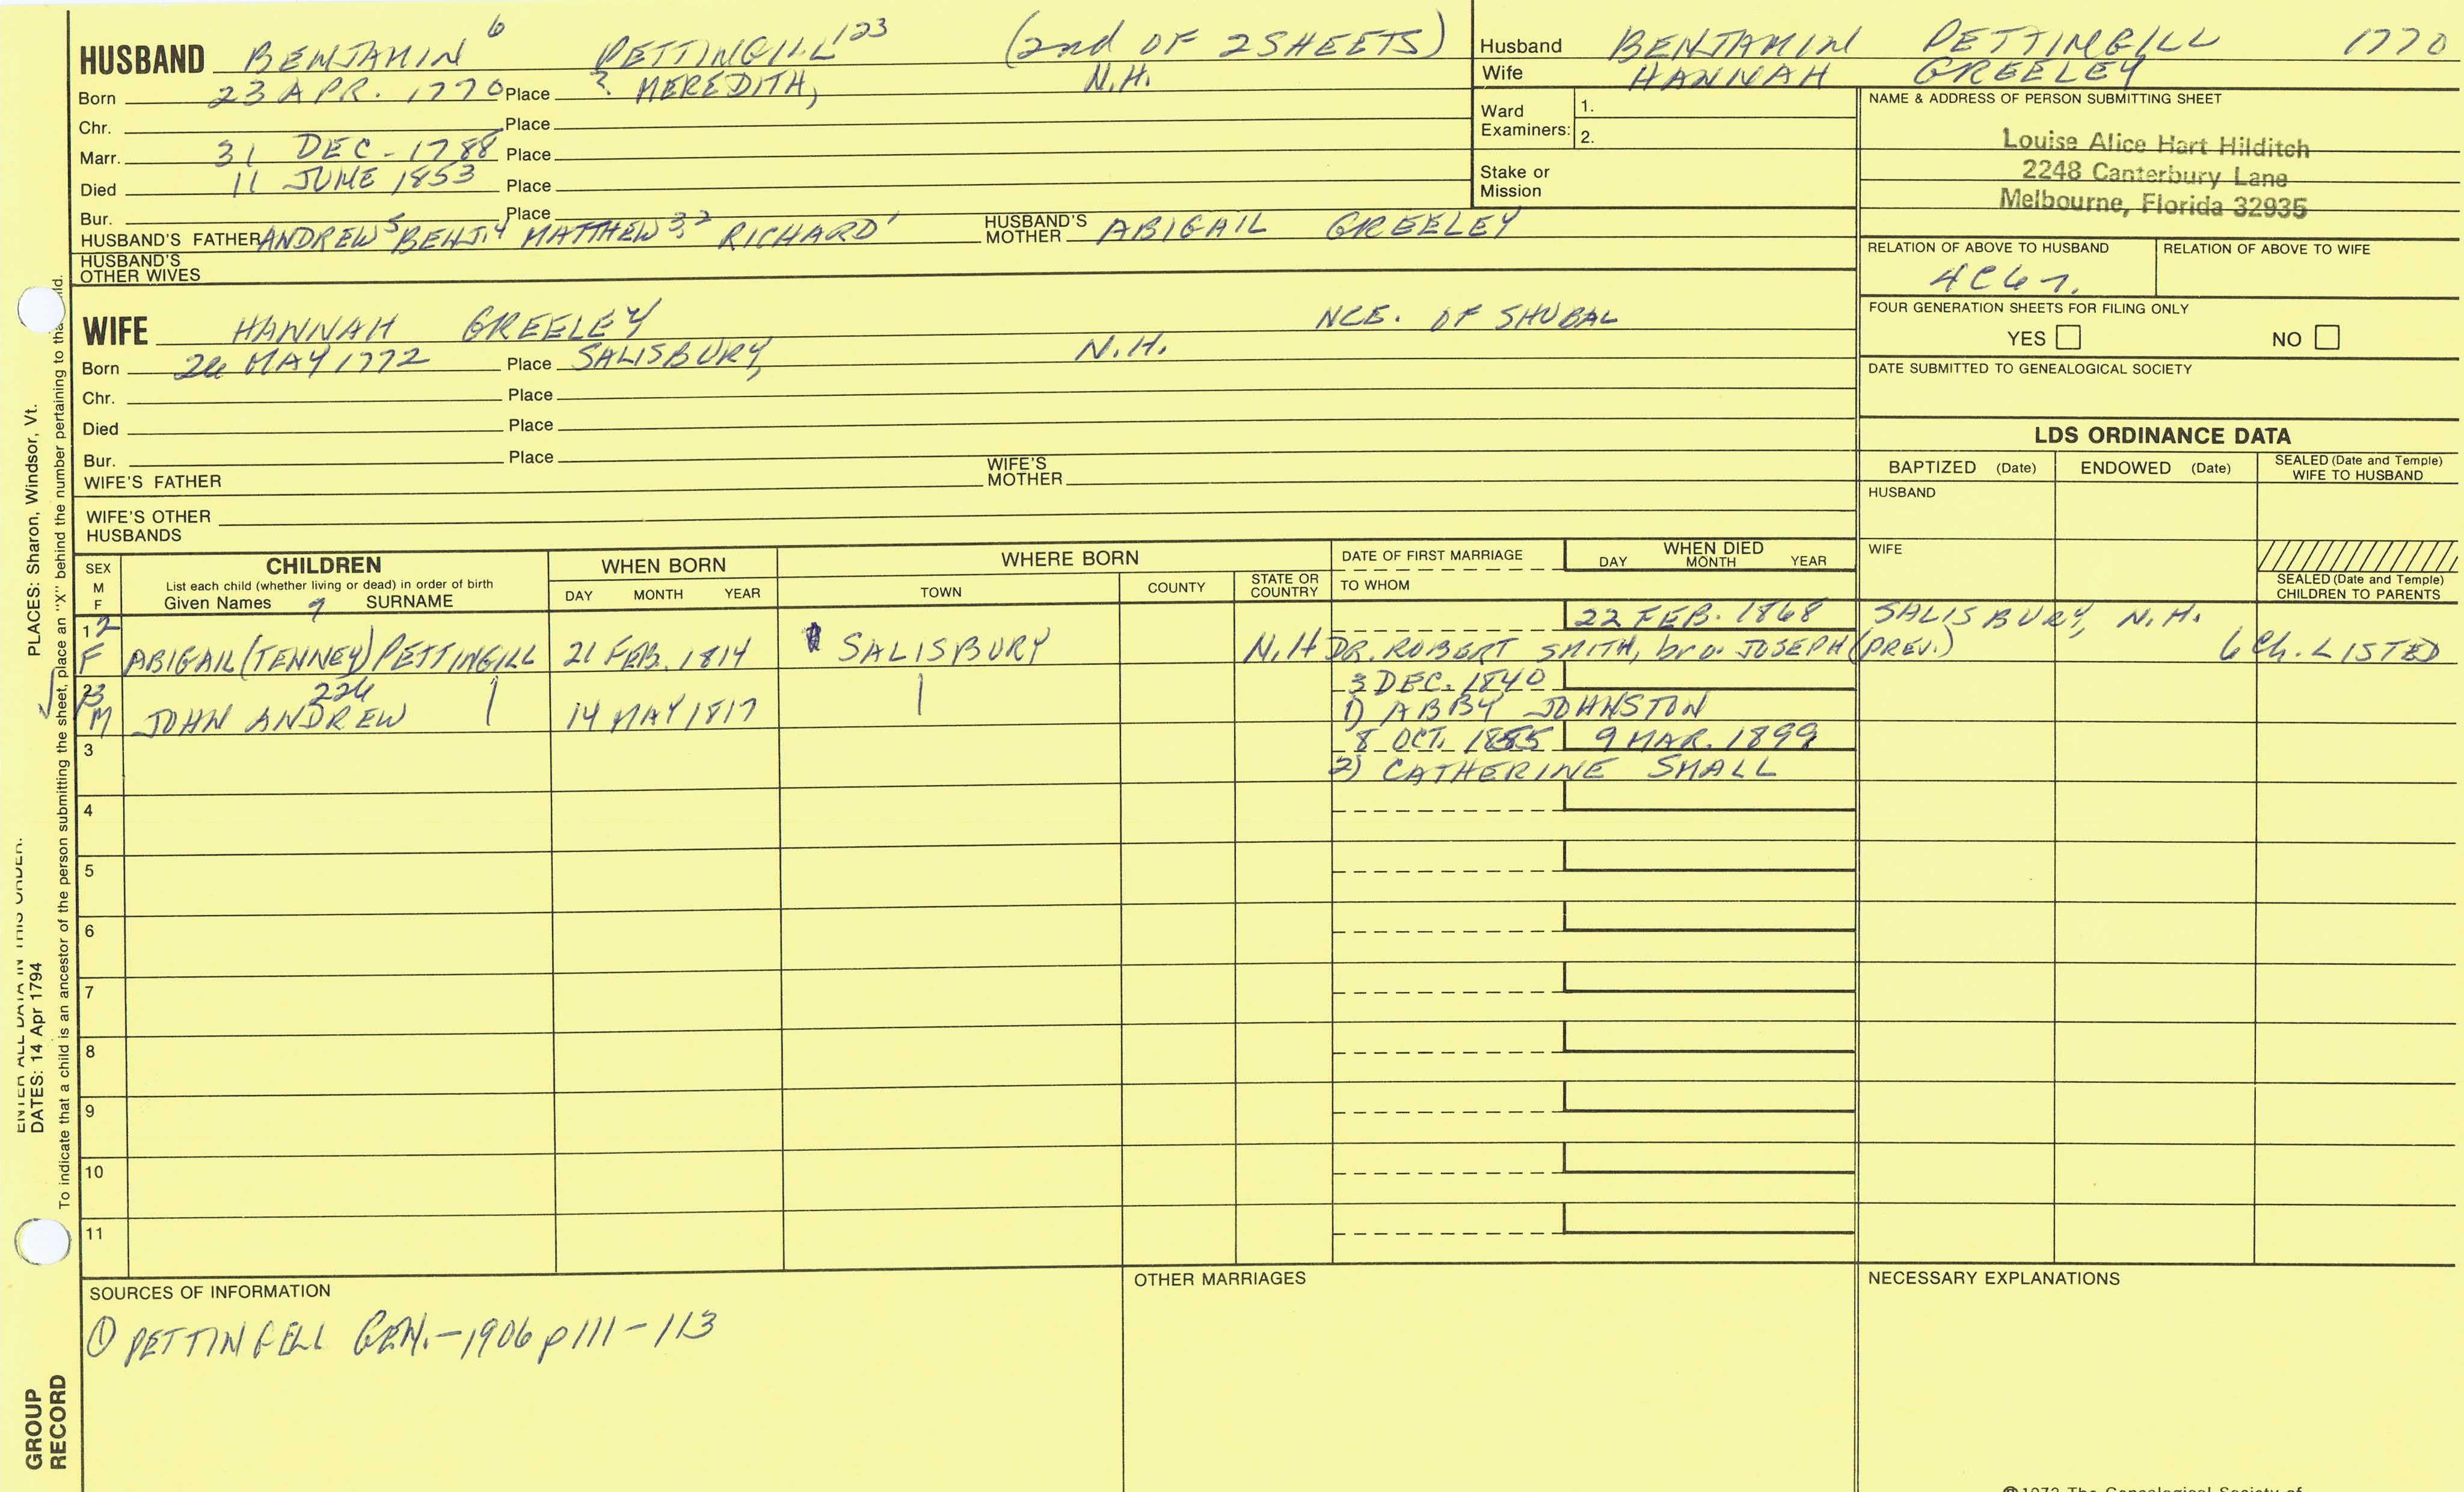 HUSBAND BENJAMIN 6 PETTINGILL 123 (2nd OF 2 SHEETS)
Born 23 APR. 1770 Place ? MEREDITH, N.H.
Chr. Place
Marr. 31 DEC - 1788 Place
Died 11 JUNE 1853 Place
Bur. Place
HUSBAND'S FATHER ANDREW 5 BENJ. 4 MATTHEW 3, 2 RICHARD 1 HUSBAND'S MOTHER ABIGAIL GREELEY
HUSBAND'S OTHER WIVES
Husband BENJAMIN PETTINGILL 1770
Wife HANNAH GREELEY
Ward Examiners: 1.
2.
Stake or Mission
NAME & ADDRESS OF PERSON SUBMITTING SHEET
Louise Alice Hart Hilditch
2248 Canterbury Lane
Melbourne, Florida 32935
RELATION OF ABOVE TO HUSBAND RELATION OF ABOVE TO WIFE
FOUR GENERATION SHEETS FOR FILING ONLY
YES NO
DATE SUBMITTED TO GENEALOGICAL SOCIETY
WIFE HANNAH GREELEY NCE. OF SHUBAL
Born MAY 1772 Place SALISBURY, N.H.
Chr. Place
Died Place
Bur. Place
WIFE'S FATHER WIFE'S MOTHER
WIFE'S OTHER HUSBANDS
LDS ORDINANCE DATA
BAPTIZED (Date) ENDOWED (Date) SEALED (Date and Temple) WIFE TO HUSBAND
HUSBAND
WIFE
SEALED (Date and Temple) CHILDREN TO PARENTS
SEX M F
CHILDREN
List each child (whether living or dead) in order of birth
Given Names 7 SURNAME
WHEN BORN
DAY MONTH YEAR
WHERE BORN
TOWN COUNTY STATE OR COUNTRY
DATE OF FIRST MARRIAGE
TO WHOM
WHEN DIED
DAY MONTH YEAR
12 22 FEB. 1868 SALISBURY, N.H.
F ABIGAIL (TENNEY) PETTINGILL 21 FEB. 1814 SALISBURY N.H DR. ROBERT SMITH, bro. JOSEPH (PREV.) 6 Ch. LISTED
226 3 DEC. 1840
M JOHN ANDREW 14 MAY 1817 1) ABBY JOHNSTON
3 8 OCT. 1885 9 MAR. 1899
2) CATHERINE SMALL
4
5
6
7
8
9
10
11
SOURCES OF INFORMATION
① PETTINGELL GEN. - 1906 p 111 - 113
OTHER MARRIAGES
NECESSARY EXPLANATIONS
ENTER ALL DATA IN THIS ORDER:
DATES: 14 Apr 1794
PLACES: Sharon, Windsor, Vt.
To indicate that a child is an ancestor of the person submitting the sheet, place an "X" behind the number pertaining to that child.
GROUP
RECORD